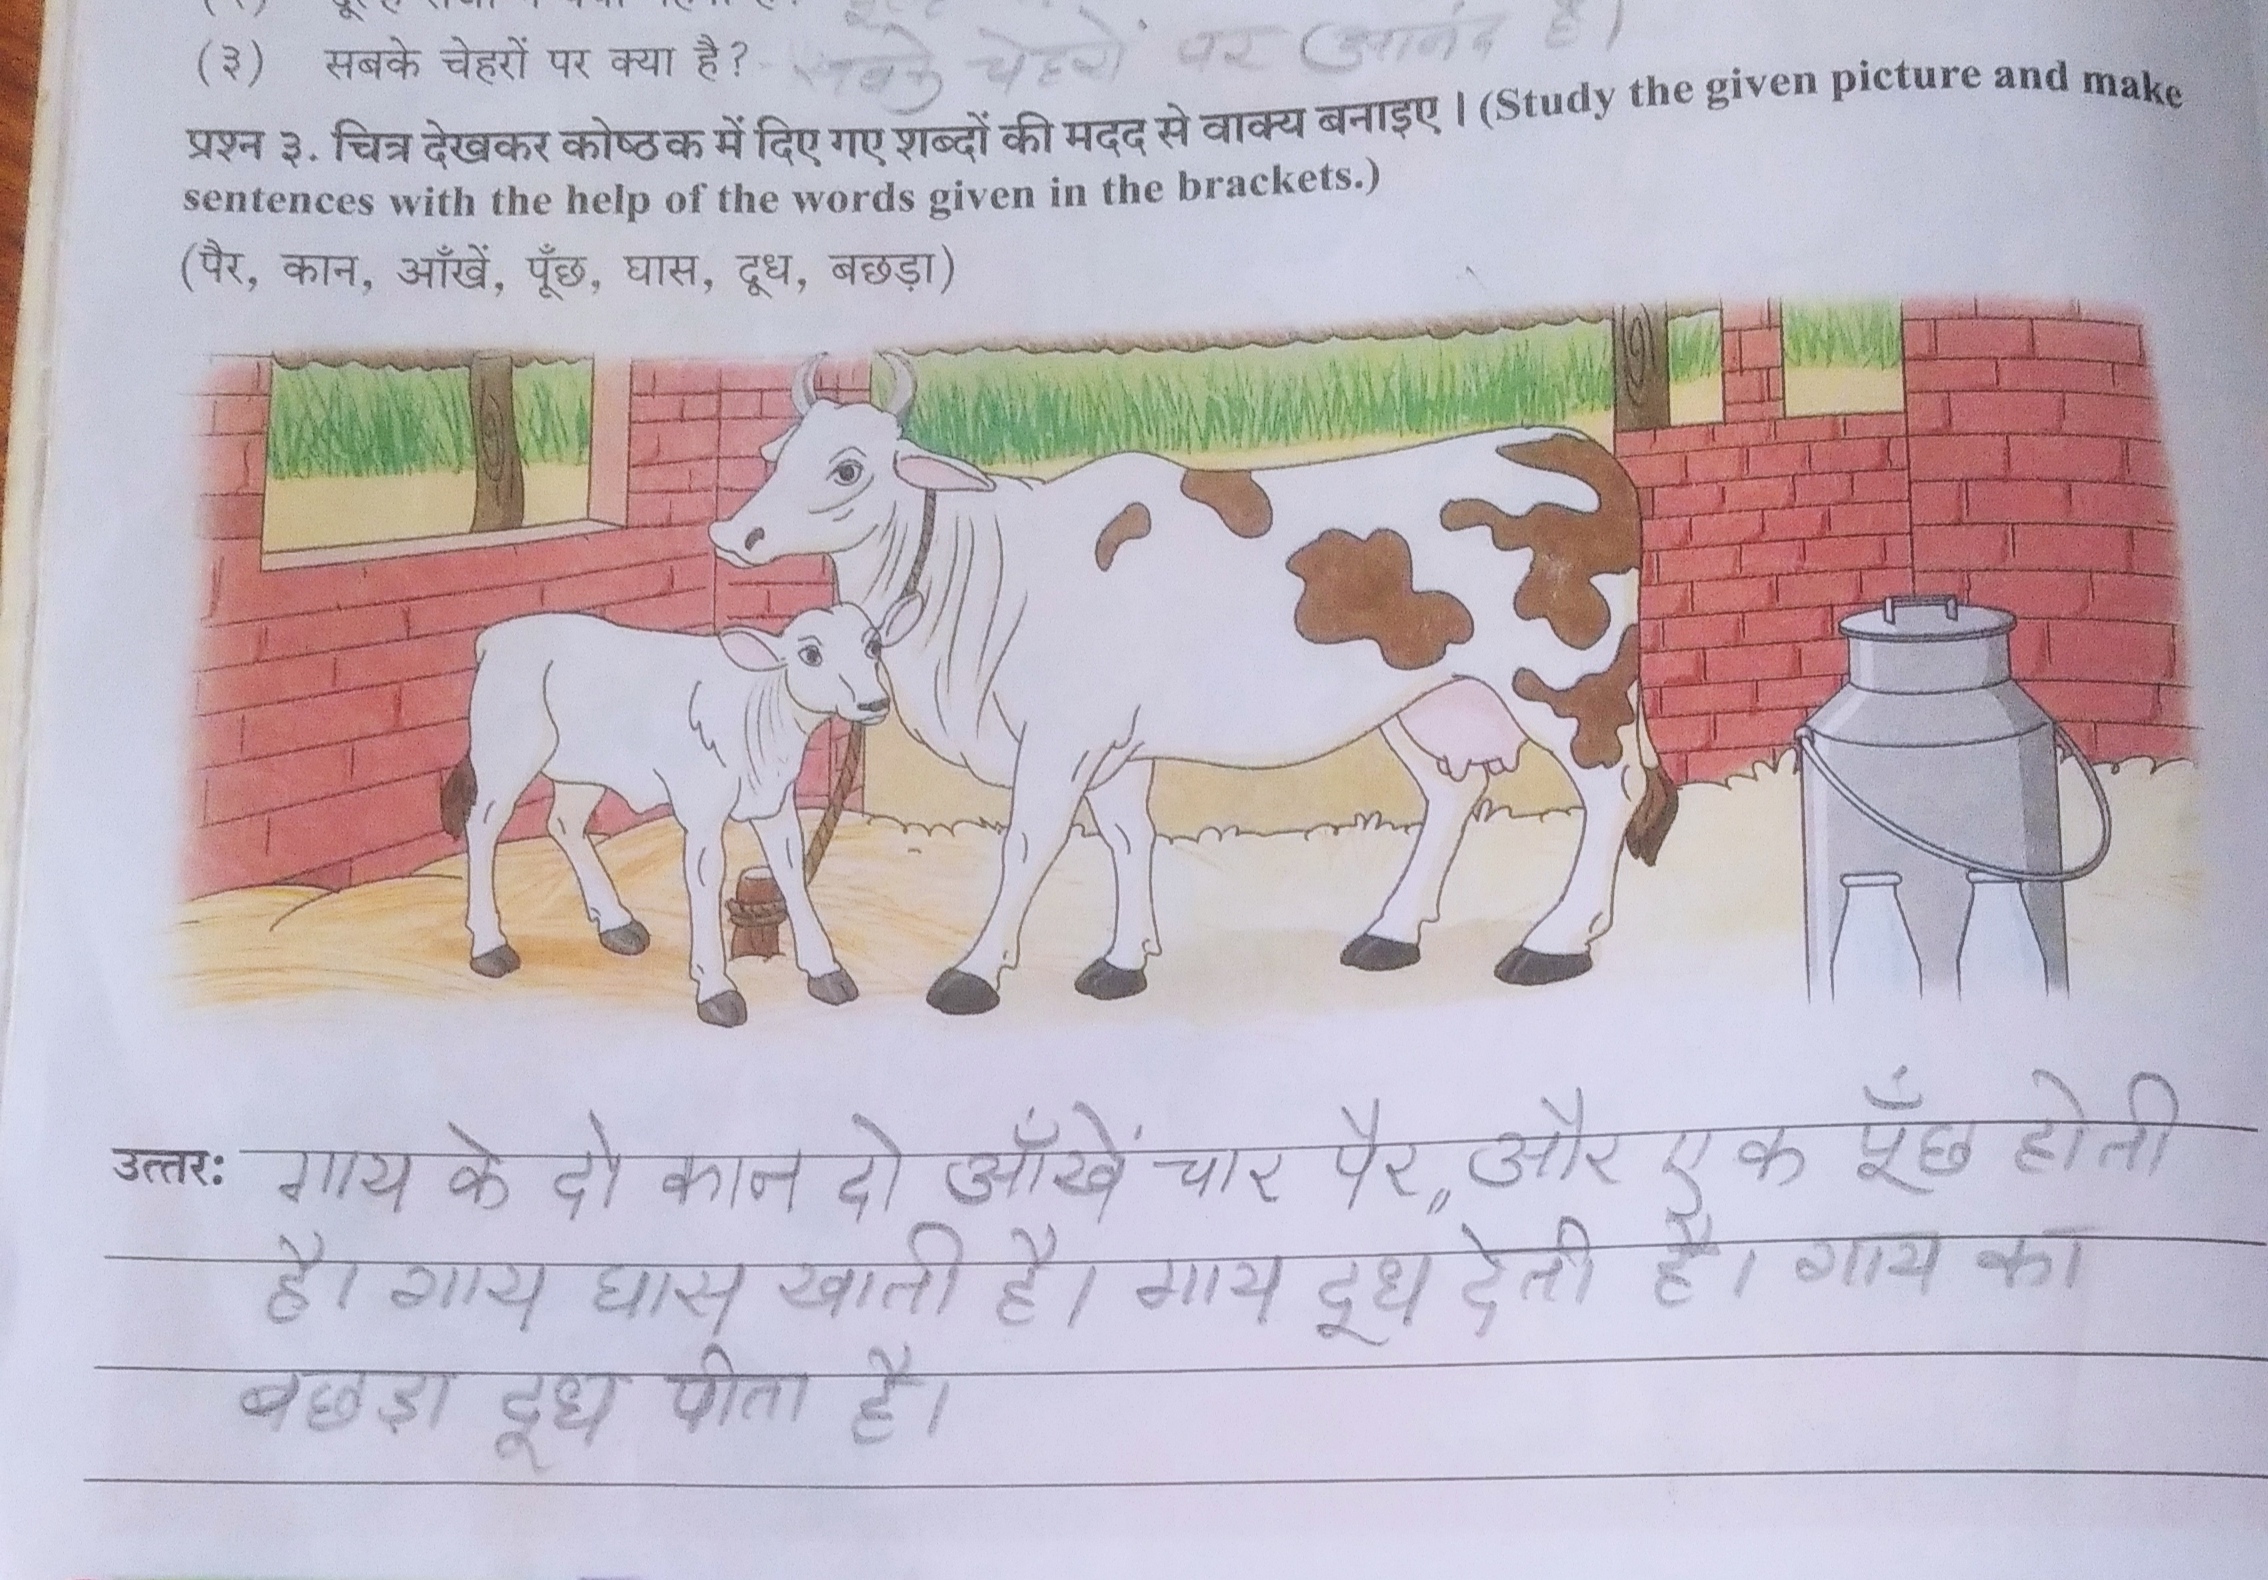 (३) सबके चेहरों पर क्या है? सबके चेहरों पर आनंद है।
प्रश्न ३. चित्र देखकर कोष्ठक में दिए गए शब्दों की मदद से वाक्य बनाइए। (Study the given picture and make
sentences with the help of the words given in the brackets.)
(पैर, कान, आँखें, पूँछ, घास, दूध, बछड़ा)
उत्तर: गाय के दो कान दो आँखें चार पैर,, और एक पूँछ होती
है। गाय घास खाती है। गाय दूध देती है। गाय का
बछड़ा दूध पीता है।